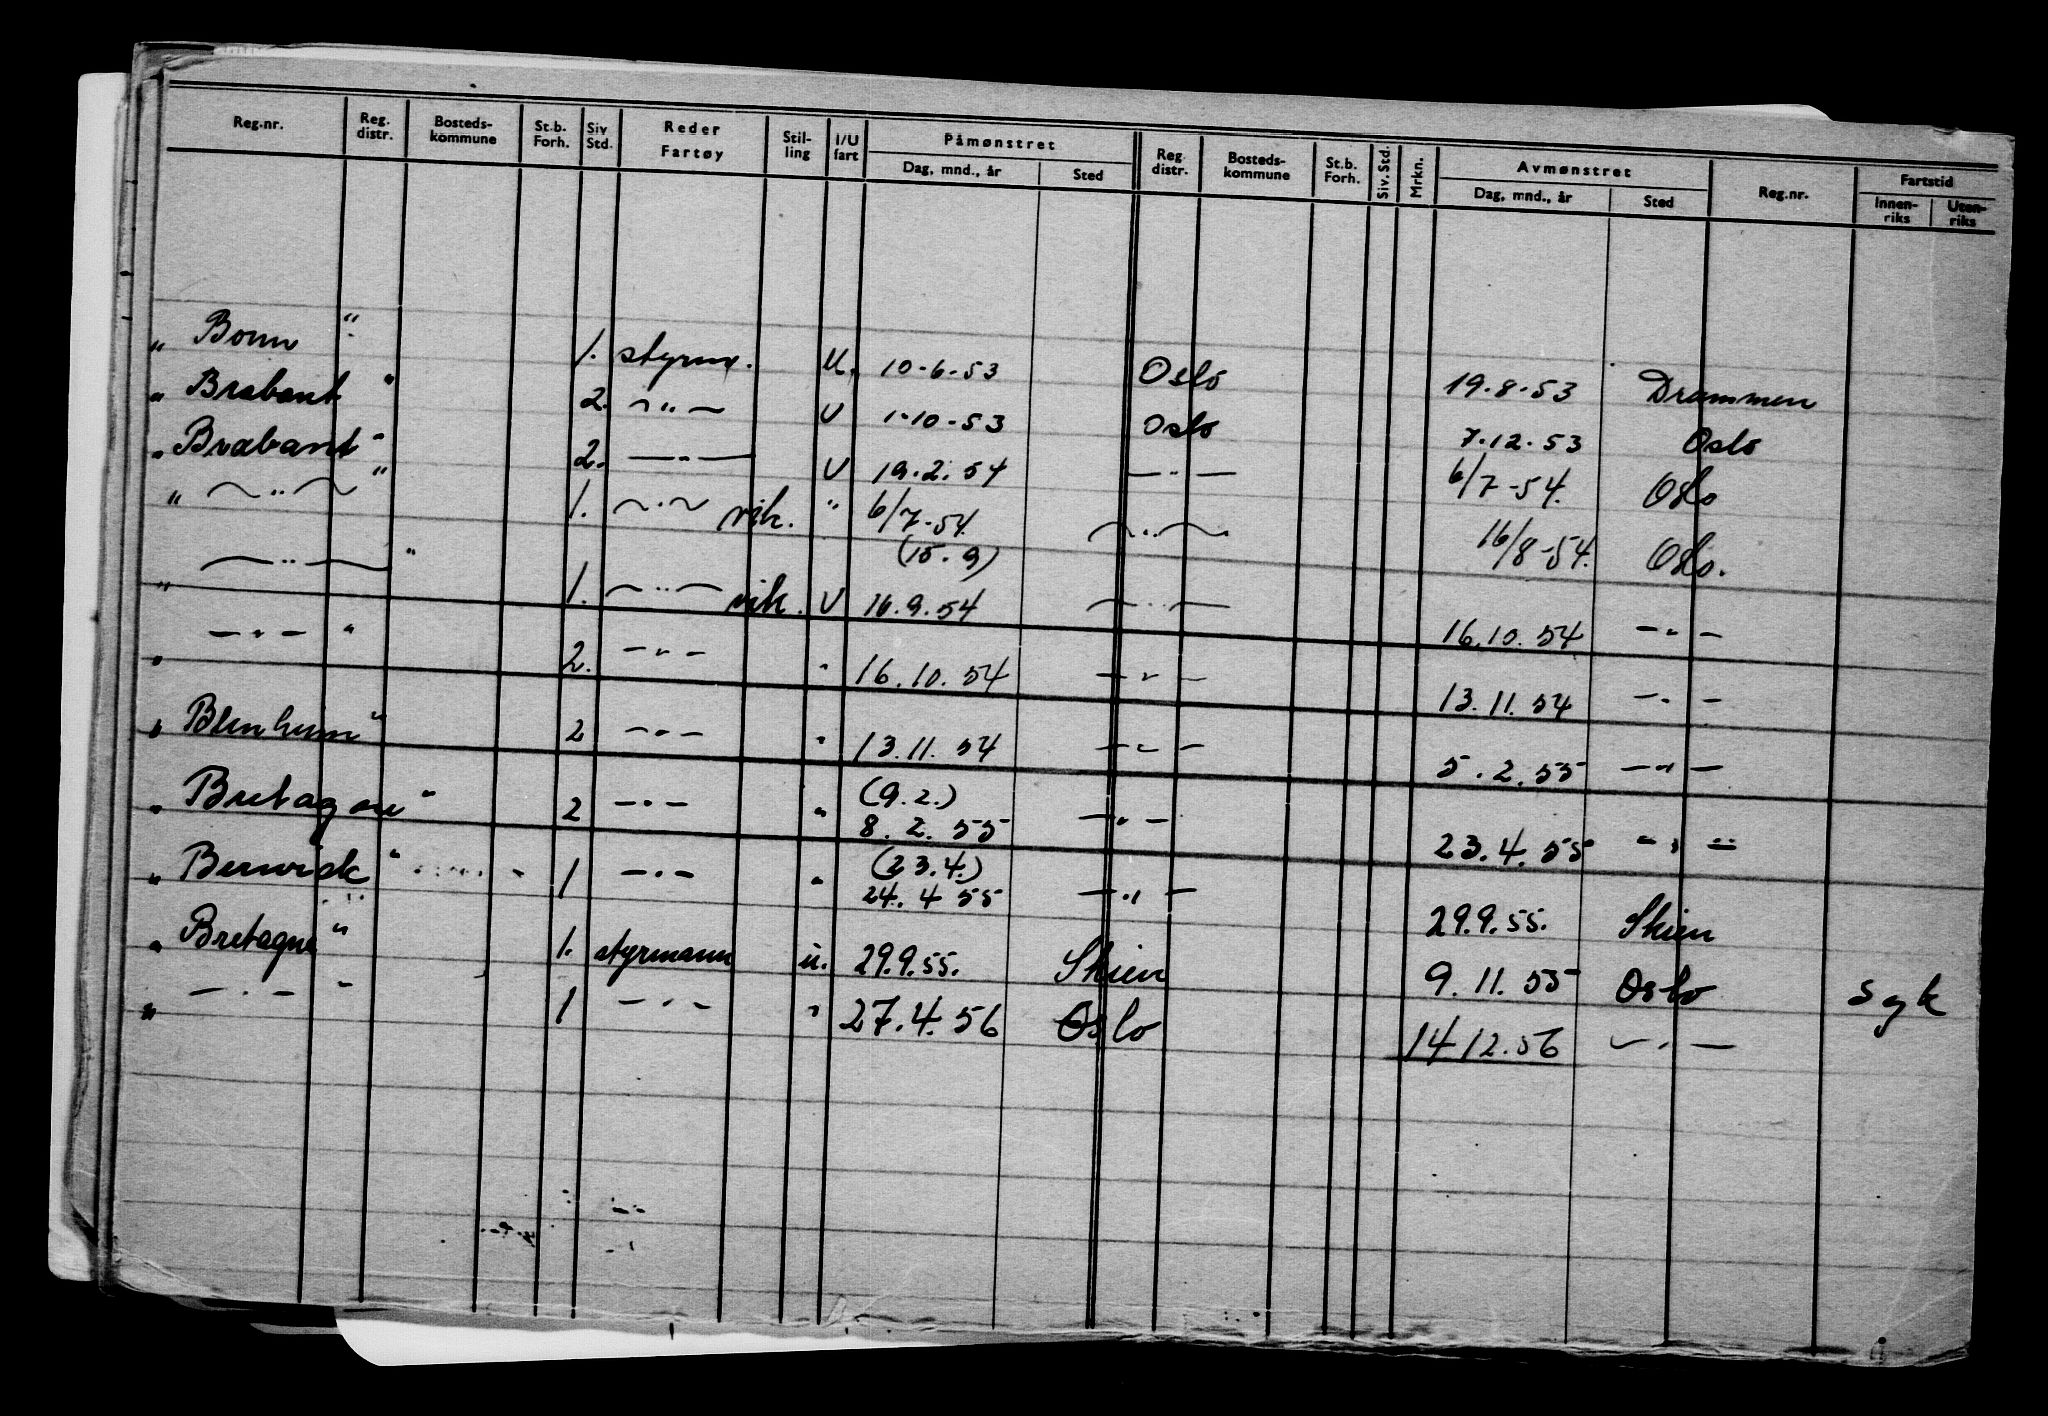 Reg.nr. Reg. distr. Bosteds-kommune St.b. Forh. Siv Std. Reder Fartøy Stil-ling I/U fart Påmønstret Dag, mnd., år Sted Reg. distr. Bosteds-kommune St.b. Forh. Siv. Std. Mrkn. Avmønstret Dag, mnd., år Sted Reg.nr. Fartstid Innen-riks Uten-riks
„ Bonn “ 1. styrm. U. 10-6-53 Oslo 19.8.53 Drammen
„ Brabant “ 2. — „ — U 1-10-53 Oslo 7.12.53 Oslo
„ Brabant “ 2. — „ — U 19.2.54 — „ — 6/7-54. Oslo
„ — „ — “ 1. — „ — vik. " 6/7-54. — „ — 16/8-54. Oslo.
(15.9)
„ — „ — “ 1. — „ — vik. U 16.9.54 — „ — 16.10.54 — „ —
„ — „ — “ 2. — „ — " 16.10.54 — „ — 13.11.54 — „ —
„ Blenheim “ 2 — „ — " 13.11.54 — „ — 5.2.55 — „ —
(9.2.)
„ Bretagne “ 2 — „ — " 8.2.55 — „ — 23.4.55 — „ —
(23.4.)
„ Berwick “ 1 — „ — " 24.4 55 — „ — 29.9.55. Skien
„ Bretagne “ 1. styrmann u. 29.9.55. Skien 9.11.55 Oslo syk
„ — „ — “ 1 — „ — " 27.4.56 Oslo 14 12.56 — „ —